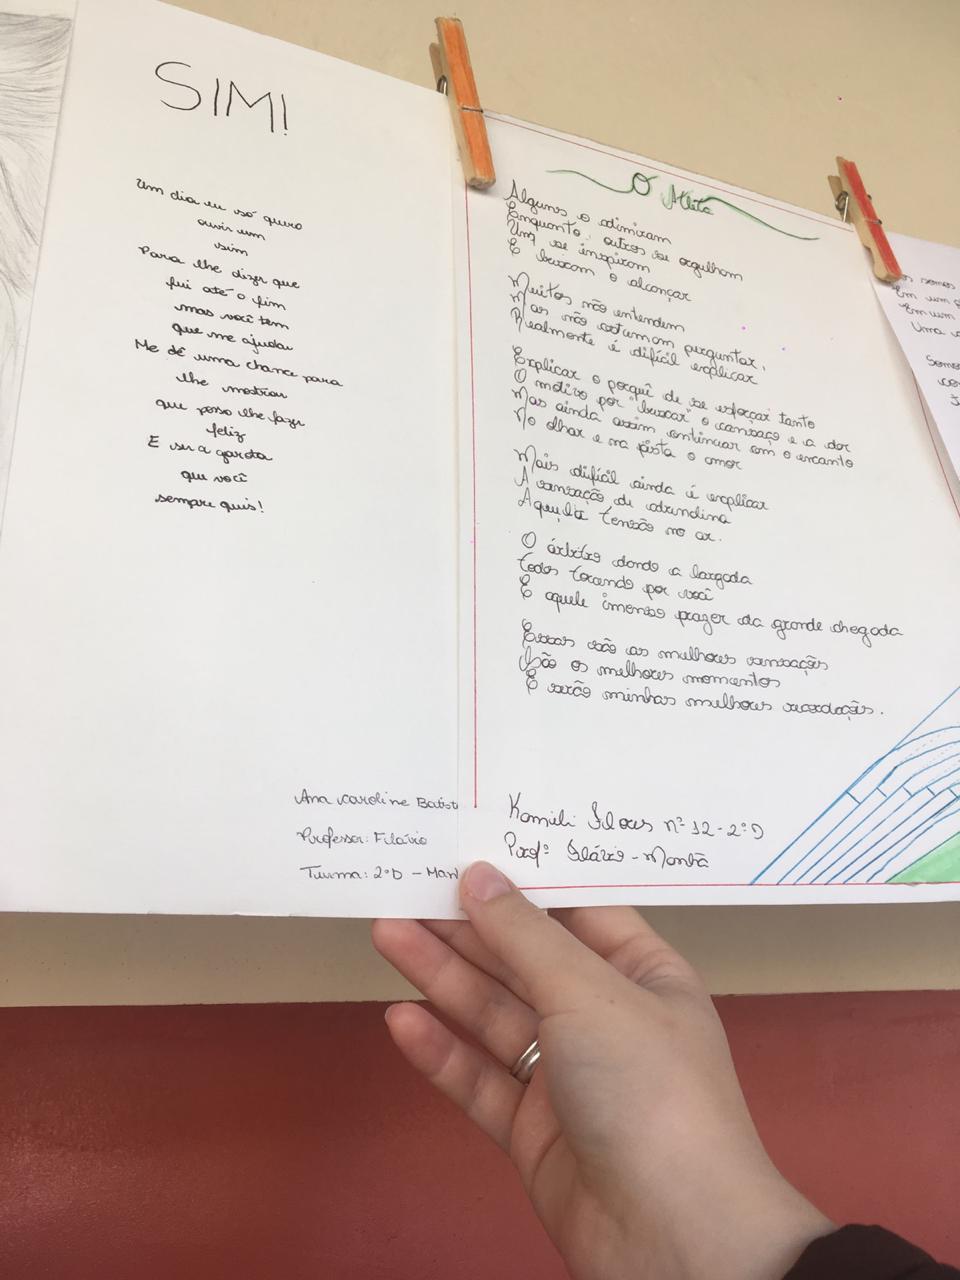 SIM!
Um dia eu só quero
ouvir um
sim
Para lhe dizer que
fui até o fim
mas você tem
que me ajudar
Me dê uma chance para
lhe mostrar
que posso lhe fazer
feliz
E ser a garota
que você
sempre quis!
Ana Caroline Batist
Professor: Flávio
Turma: 2ºD - Man
O Atleta
Alguns o admiram
Enquanto outros se orgulham
Um se inspiram
E buscam o alcançar
Muitos não entendem
Mas não costumam perguntar,
Realmente é difícil explicar
Explicar o porquê de se esforçar tanto
O motivo por "buscar" o cansaço e a dor
Mas ainda assim continuar com o encanto
No olhar e na pista o amor
Mais difícil ainda é explicar
A sensação de adrenalina
Aquela tensão no ar.
O árbitro dando a largada
todos torcendo por você
E aquele imenso prazer da grande chegada
Essas são as melhores sensações
São os melhores momentos
E serão minhas melhores recordações.
nº 12 - 2ºD
Profº Flávio - Manhã
somos
Em um
Em um
Uma